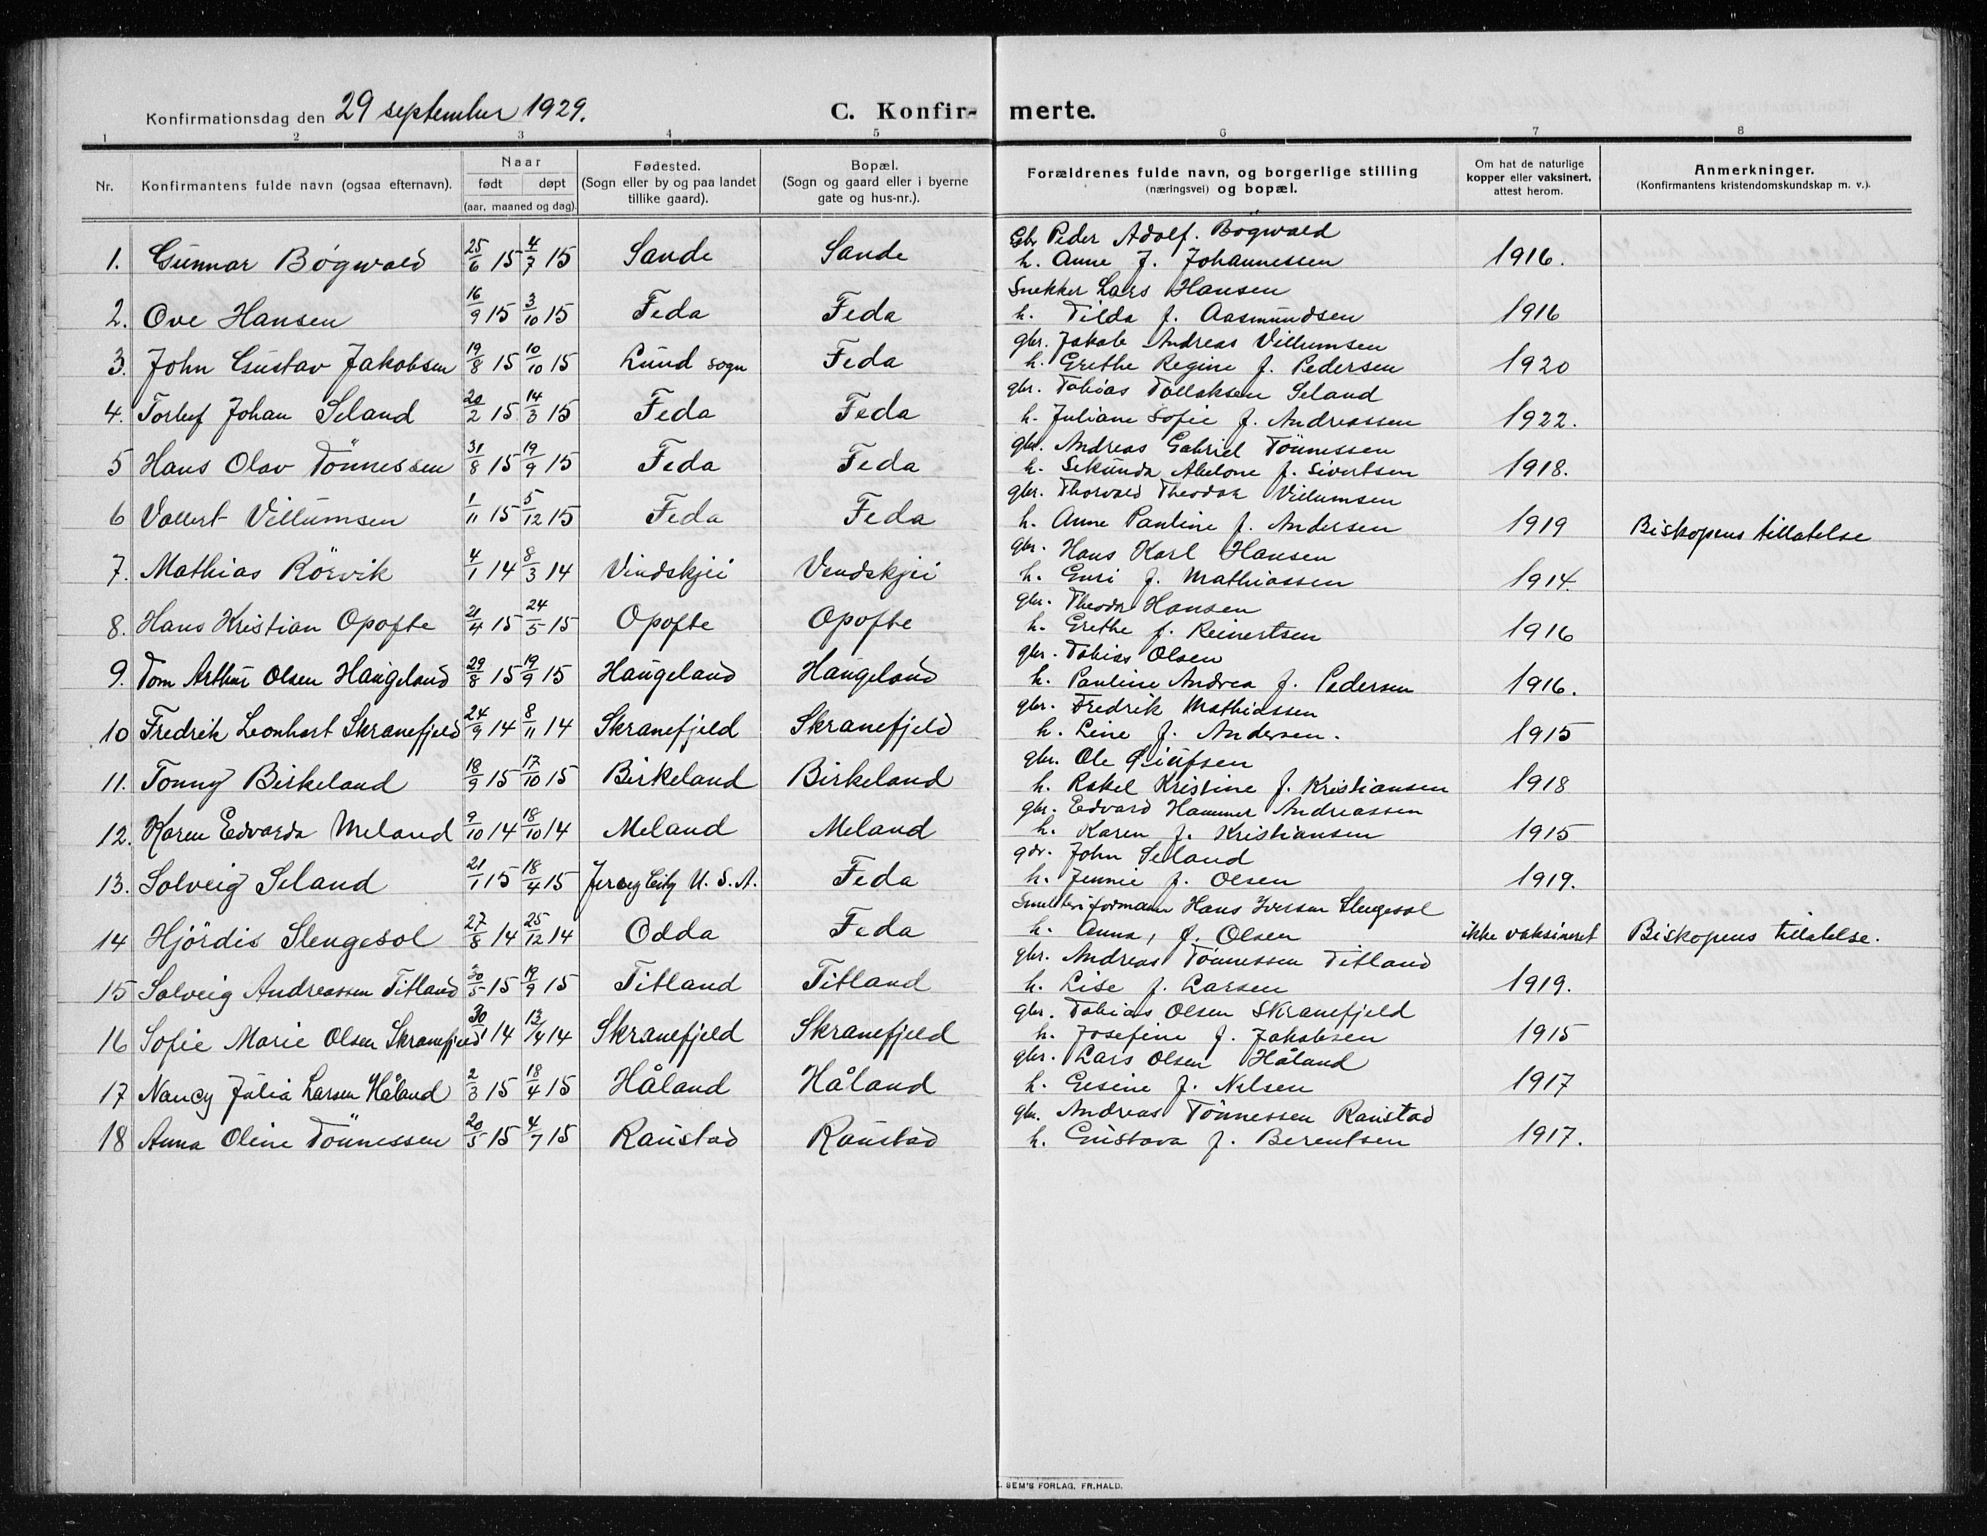 Konfirmationsdag den 29 september 1929. C. Konfir- merte.
1 2 3 4 5 6 7 8
Nr. Konfirmantens fulde navn (ogsaa efternavn). Naar født døpt (aar, maaned og dag). Fødested. (Sogn eller by og paa landet tillike gaard). Bopæl. (Sogn og gaard eller i byerne gate og hus-nr.). Forældrenes fulde navn, og borgerlige stilling (næringsvei) og bopæl. Om hat de naturlige kopper eller vaksinert, attest herom. Anmerkninger. (Konfirmantens kristendomskundskap m. v.).
Gbr Peder Adolf. Bøgwald
1. Gunnar Bøgwald 25/6 15 4/7 15 Sande Sande h. Anne J. Johannessen 1916.
Snekker Lars Hansen
2. Ove Hansen 16/9 15 3/10 15 Feda Feda h. Tilda f. Aasmundsen 1916
gbr. Jakob Andreas Villumsen
3. John Gustav Jakobsen 19/8 15 10/10 15 Lund sogn Feda h. Grethe Regine f. Pedersen 1920
gbr. Tobias Tollaksen Seland
4. Torlef Johan Seland 20/2 15 14/3 15 Feda Feda h. Juliane Sofie f. Andreassen 1922.
gbr. Andreas Gabriel Tönnessen
5 Hans Olav Tönnessen 31/8 15 19/9 15 Feda Feda h. Sekunda Abelone f. Sivertsen 1918.
gbr. Thorvald Theodor Villumsen
6 Vallert Villumsen 1/11 15 5/12 15 Feda Feda h. Anne Pauline f. Andersen 1919 Biskopens tillatelse
gbr. Hans Karl Hansen
7. Mathias Rörvik 4/1 14 8/3 14 Vindskjei Vendskjei h. Guri f. Mathiassen 1914.
gbr. Theodor Hansen
8. Hans Kristian Opofte 21/4 15 24/5 15 Opofte Opofte h. Grethe f. Reinertsen 1916
gbr. Tobias Olsen
9. Tom Arthur Olsen Haugeland 29/8 15 19/9 15 Haugeland Haugeland h. Pauline Andrea f. Pedersen 1916.
gbr. Fredrik Mathiassen
10 Fredrik Leonhart Skranefjeld 24/9 14 8/11 14 Skranefjeld Skranefjeld h. Line f. Andersen. 1915
gbr. Ole
11. Tonny Birkeland 18/9 15 17/10 15 Birkeland Birkeland h. Rakel Kristine f. Kristiansen 1918
gbr. Edvard Hammer Andreassen
12. Karen Edvarda Meland 9/10 14 18/10 14 Meland Meland h. Karen f. Kristiansen 1915
gdr. John Seland
13. Solveig Seland 21/1 15 18/4 15 Jersey City U. S. A. Feda h. Jennie f. Olsen 1919.
Smelteriformann Hans Iversen Slengesol
14 Hjördis Slengesol 27/8 14 25/12 14 Odda Feda h. Anna, f. Olsen ikke vaksineret Biskopens tillatelse.
gbr. Andreas Tönnessen Titland
15 Solveig Andreassen Titland 30/5 15 19/9 15 Titland Titland h. Lise f. Larsen 1919.
gbr. Tobias Olsen Skranefjeld
16 Sofie Marie Olsen Skranefjeld 30/1 14 13/4 14 Skranefjeld Skranefjeld h. Josefine f. Jakobsen 1915
gbr. Lars Olsen Håland
17 Nancy Julia Larsen Håland 2/3 15 18/4 15 Håland Håland h. Gesine f. Nelsen 1917
gbr. Andreas Tönnessen Raustad
18 Anna Oline Tönnessen 20/5 15 4/7 15 Raustad Raustad h. Gustava f. Berentsen 1917.
SEM'S FORLAG, FR.HALD.